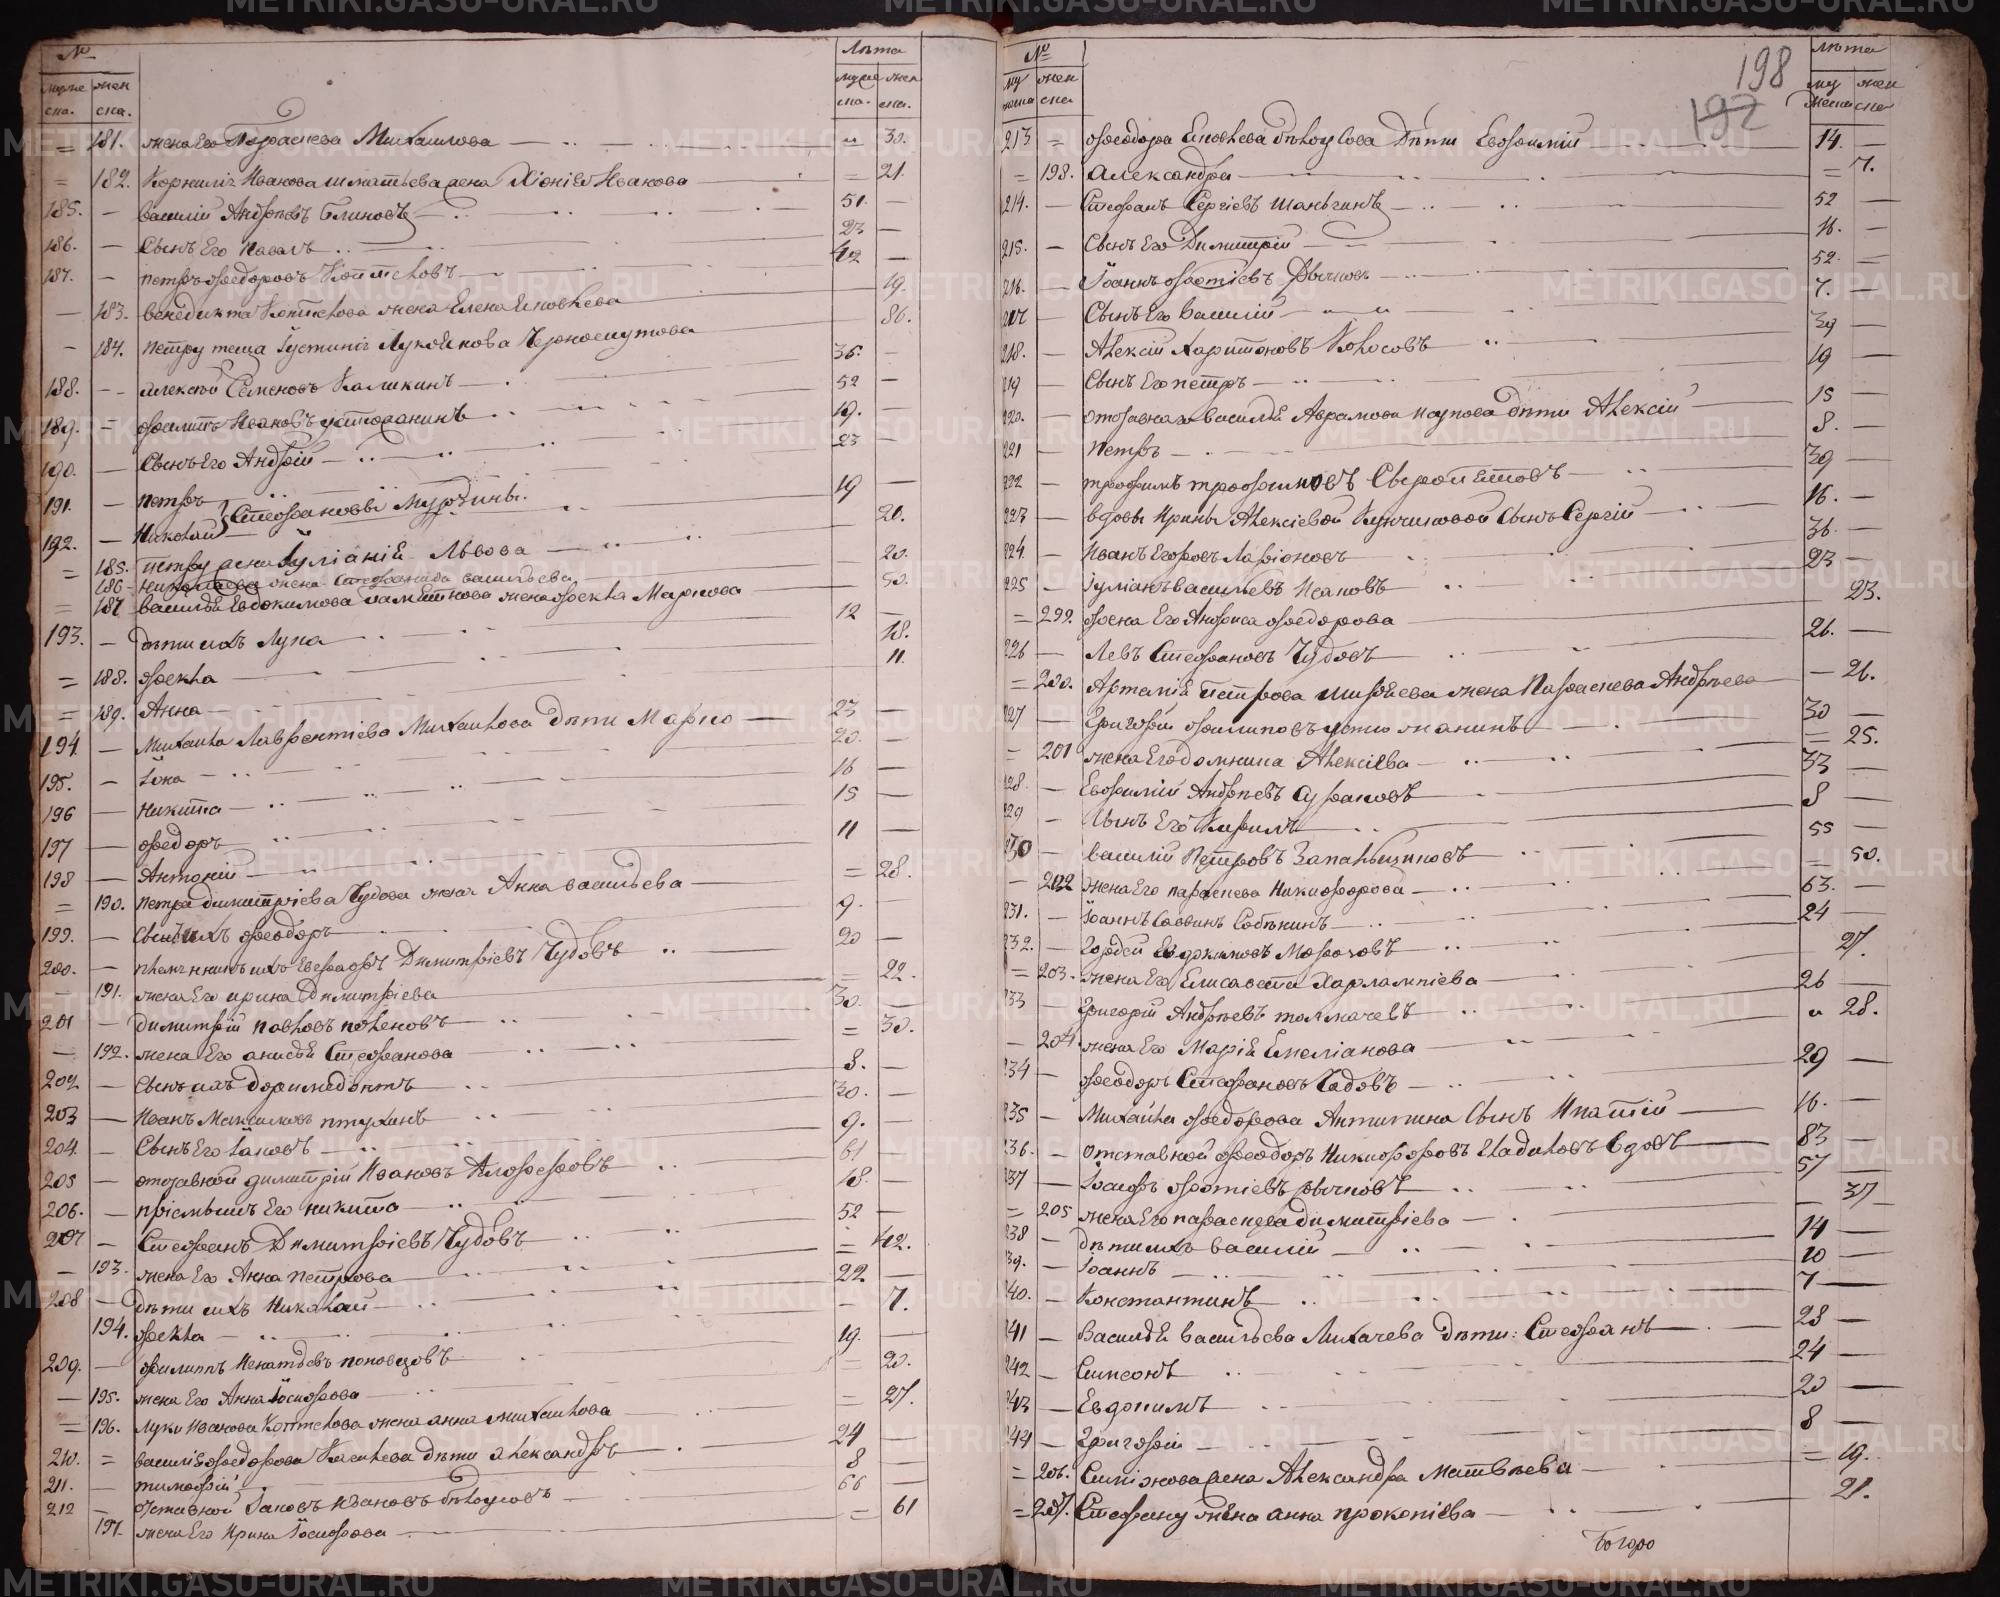 №
Лѣта
мужеска. женска.
мужеска. женска.
= 181. жена Его Параскева Михаилова — 30.
= 182. Корнилія Иванова жена Хіонія Иванова — = 21.
185. — василій Андрѣевъ Блиновъ — 51. —
186. — Сынъ Его Павелъ — 23 —
187. — петръ Феодоровъ Коптеловъ — 42 —
— 183. венедикта Коптелова жена Елена Яковлева — 19.
— 184. петру теща Іустинія Лукоянова Черноскутова — 86.
188. — Алексѣй Семеновъ Каликинъ — 36. —
189. — филипъ Ивановъ устюжанинъ — 52 —
190. — Сынъ Его Андрей — 19. —
191. — петръ — 23 —
192. — Николай Стефановы Мурзины. — 19 —
= 185. петру жена Іуліанія Львова — 20.
186 — николаева жена Стефанида васильева — 20.
= 187 василья Евдокимова жена фекла Маркова — 50.
193. — дѣти ихъ Лука — 12 —
= 188. фекла — 18.
= 189. Анна — 11.
194 — Михаила Лаврентіева Михаилова дѣти Марко — 23 —
195. — Іона — 20. —
196 — Никита — 16 —
197 — феодоръ — 15 —
198 — Антоній — 11 —
= 190. петра димитріева Чудова жена Анна васильева — = 28.
199. — Сынъ ихъ феодоръ — 9.
200. — племянникъ ихъ Евграфъ Димитріевъ Чудовъ — 20 —
— 191. жена Его ирина димитріева — = 22.
201 — димитрій павловъ поленовъ — 30. —
— 192. жена Его анисья Стефанова — = 30.
202 — Сынъ ихъ доримедонтъ — 8. —
203 — Иванъ Максимовъ птухинъ — 30. —
204. — Сынъ Его Іаковъ — 9. —
205 — отставной димитрій Ивановъ Алферовъ — 61 —
206. — пріемышъ Его никита — 18. —
207 — Стефанъ Димитріевъ Чудовъ — 52 —
— 193. жена Его Анна петрова — = 42.
208 — дѣти ихъ Николай — 22 —
194. фекла — 7.
209. — филиппъ Игнатьевъ поповцовъ — 19. —
— 195. жена Его Анна Іосифова — = 20.
= 196. Луки Иванова Коптелова жена анна михаилова — = 27.
210. = василія феодорова Киселева дѣти александръ — 24
211. — тимофей — 8 —
212 — отставной Іаковъ Ивановъ бѣлоусовъ — 66 —
197. жена Его Ирина Іосифова — = 61
198
192
№
лѣта
мужеска женска
мужеска женска
213 = феодора Яковлева бѣлоусова Дѣти Евфимій — 14. —
= 198. Александра — = 7.
214. — Стефанъ Сергіевъ Шаньгинъ — 52 —
215. — Сынъ Его Димитрій — 16. —
216. — Іоаннъ фотіевъ Овычковъ — 52. —
217 — Сынъ Его Василій — 7. —
218. — Алексій Харитоновъ Колосовъ — 39 —
219 — Сынъ Его петръ — 19 —
220. — отставнаго василья Аврамова дѣти Алексій — 15 —
221 — Петръ — 8. —
222 — трофимъ трофимовъ Сыропятовъ — 39 —
223 — вдовы Ирины Алексіевой Сынъ Сергій — 16. —
224. — Иванъ Егоровъ Ларіоновъ — 36. —
225 — Іуліанъ васильевъ Исаковъ — 23 —
= 299. жена Его Анфиса феодорова — 23.
226 — Левъ Стефановъ Чудовъ — 26. —
= 200. Артемія петрова жена Параскева Андрѣева — 26.
227 — Григорій филиповъ устюжанинъ — 30 —
= 201 жена Его домнина Алексіева — = 25.
228. — Евфимій Андрѣевъ Сусаковъ — 33 —
229 — Сынъ Его Кирилъ — 8 —
230 — василій Петровъ Запальщиковъ — 55 —
— 202 жена Его параскева Никифорова — = 50.
231. — Іоаннъ Саввинъ Собѣнинъ — 63. —
232. — Гордей Евдокимовъ Морозовъ — 24 —
= 203. жена Его Елисавета Харлампіева — 27.
233 — Григорій Андрѣевъ толмачевъ — 26 —
— 204 жена Его Марія Емеліанова — 28.
234 — феодоръ Стефановъ Чадовъ — 29 —
235 — Михаила феодорова Антипина Сынъ Ипатій — 16. —
236. — отставной феодоръ Никифоровъ Гладиловъ вдовъ — 83 —
237 — Іосифъ фотіевъ Овычковъ — 57 —
= 205 жена Его параскева димитріева — 37
238 — дѣти ихъ василій — 14 —
239. — Іоаннъ — 10 —
240. — Константинъ — 7 —
241 — Василья васильева Лихачева дѣти: Стефанъ — 28 —
242 — Симеонъ — 24 —
243 — Евдокимъ — 20 —
244 — Григорій — 8 —
= 206. Симіонова жена Александра Матвѣева — = 19.
= 207. Стефану жена анна прокопіева — 21.
Богоро